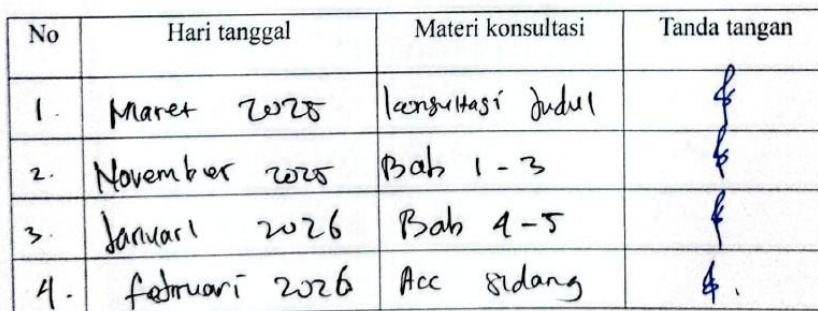 No Hari tanggal Materi konsultasi Tanda tangan
1. Maret 2025 konsultasi Judul
2. November 2025 Bab 1 - 3
3. Januari 2026 Bab 4 - 5
4. februari 2026 Acc sidang